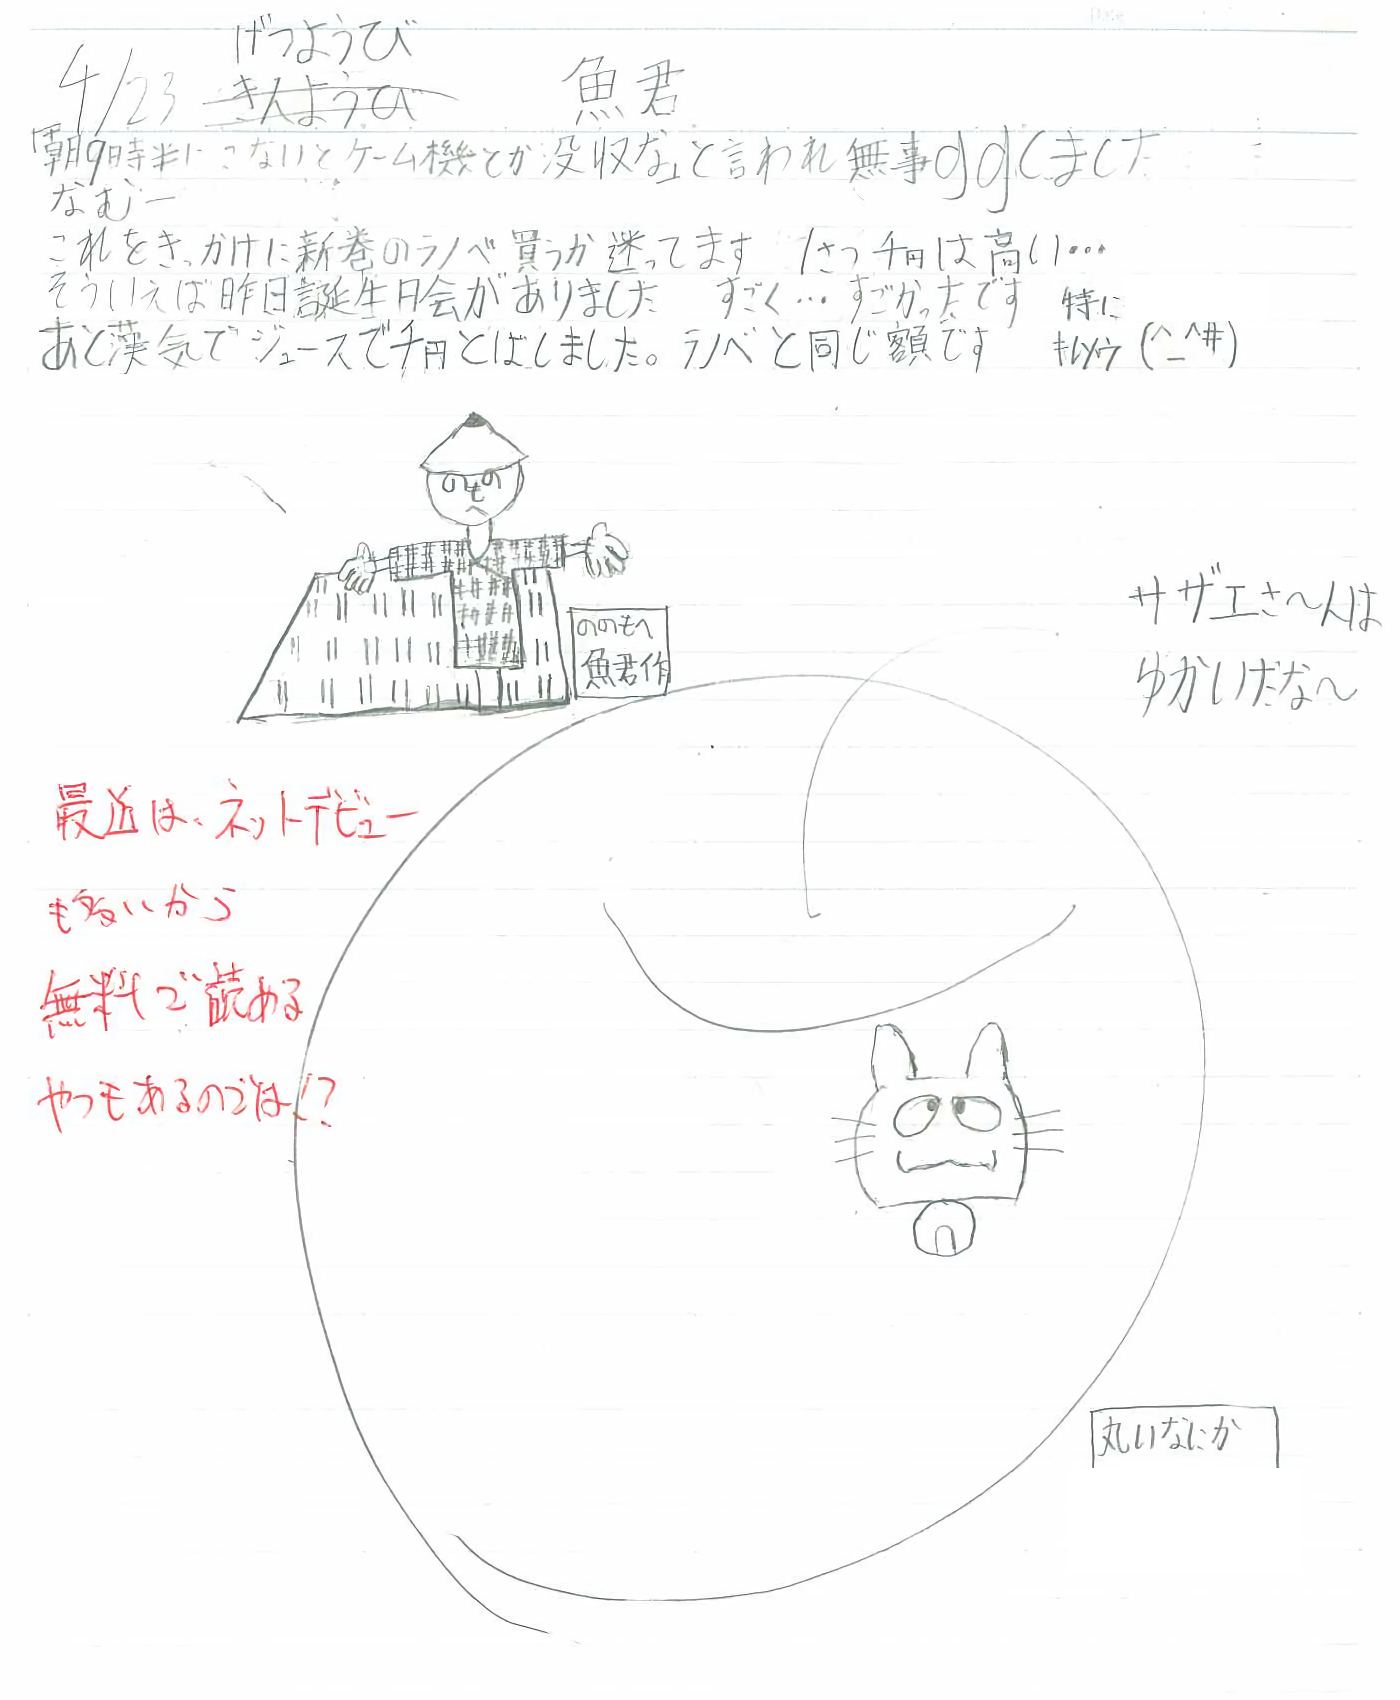 げつようび
4/23 きんようび 魚君
「朝9時半にこないとゲーム機とか没収な」と言われ無事ggくました
なむー
これをきっかけに新巻のラノベ買うか迷ってます 1さつ千円は高い…
そういえば昨日誕生日会がありました すごく…すごかったです 特に
あと漢気でジュースで千円とばしました。ラノベと同じ額です (^_^#)
ののもへ
魚君作
サザエさ〜んは
ゆかいだな〜
最近は、ネットデビュー
も多いから
無料で読める
やつもあるのでは!?
丸いなにか